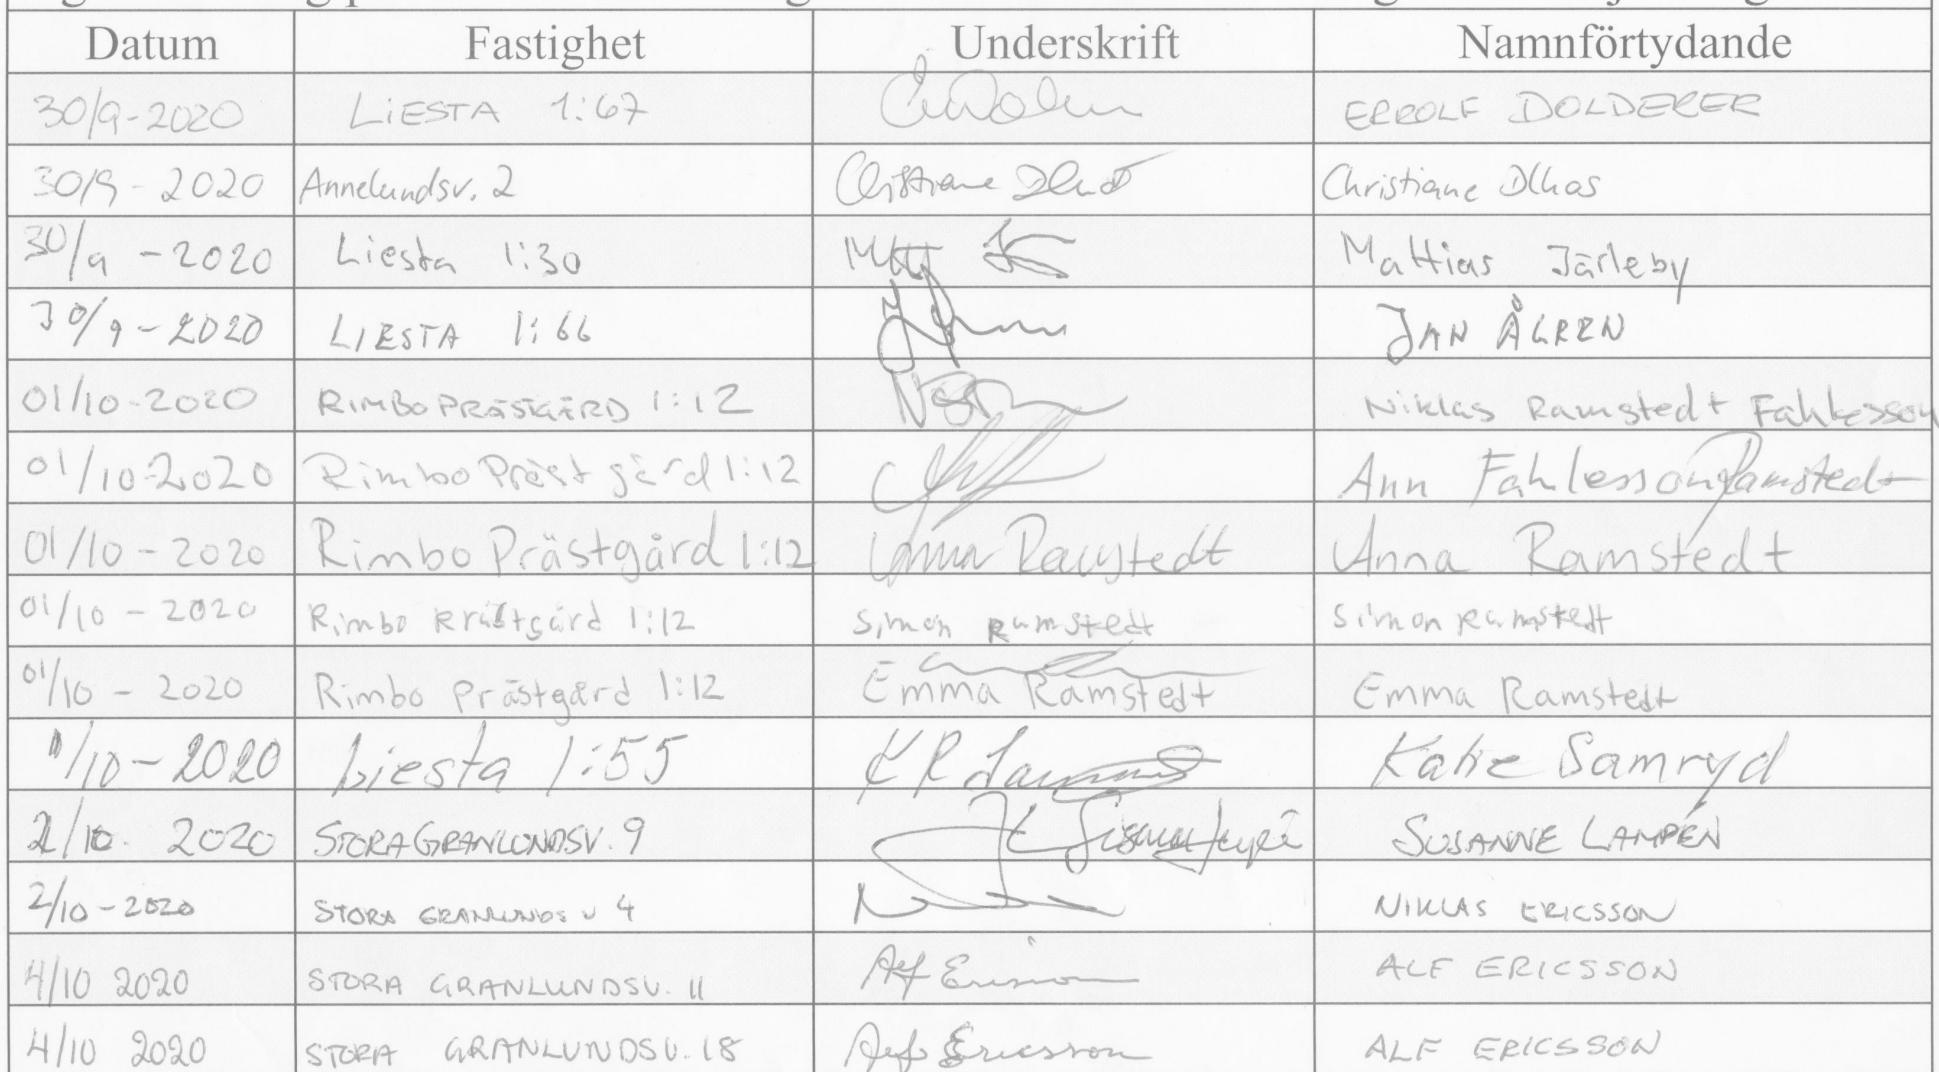 Datum Fastighet Underskrift Namnförtydande
30/9-2020 LiESTA 1:67 ERROLF DOLDERER
30/9 - 2020 Annelundsv. 2 Christiane Christiane
30/9 - 2020 Liesta 1:30 Mattias Järleby
30/9 - 2020 LIESTA 1:66 JAN ÅGREN
01/10-2020 RIMBO PRÄSTGÅRD 1:12 Niklas Ramstedt Fahlesson
01/10-2020 Rimbo Präst gård 1:12 Ann Fahlesson Ramstedt
01/10 - 2020 Rimbo Prästgård 1:12 Anna Ramstedt Anna Ramstedt
01/10 - 2020 Rimbo Prästgård 1:12 Simon Ramstedt Simon Ramstedt
01/10 - 2020 Rimbo Prästgård 1:12 Emma Ramstedt Emma Ramstedt
1/10 - 2020 Liesta 1:55 Samryd
2/10. 2020 STORA GRANLUNDSV. 9 SUSANNE LAMPÉN
2/10-2020 STORA GRANLUNDS V 4 NIKLAS ERICSSON
4/10 2020 STORA GRANLUNDSV. 11 Alf Ericsson ALF ERICSSON
4/10 2020 STORA GRANLUNDSV. 18 Alf Ericsson ALF ERICSSON